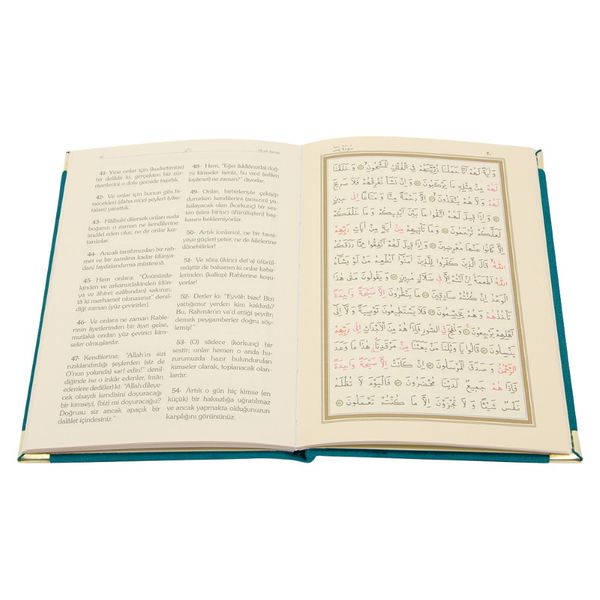 41- Yine onlar için (kudretimize)
bir delildir ki, gerçekten biz zür-
riyetlerini o dolu gemide taşıdık.
42- Ve onlar için bunun gibi bi-
necekleri (daha nice şeyleri (vâsı-
taları) yarattık.
43- Hâlbuki dilemek onları suda
boğarız; o zaman ne kendilerine
imdâd eden olur, ne de onlar kur-
tarılırlar.
44- Ancak tarafımızdan bir rah-
met ve bir zamâna kadar (dünya-
dan) faydalandırma müstesnâ.
45- Hem onlara: "Önünüzde-
kinden ve arkanızdakinden (dün-
ya ve âhiret azâbından) sakının;
tâ ki merhamet olunasınız" denil-
diği zaman (yüz çevirirler).
46- Ve onlara ne zaman Rable-
rinin âyetlerinden bir âyet gelse,
mutlakà ondan yüz çevirici kim-
seler olmuşlardır.
47- Kendilerine: "Allah'ın sizi
rızıklandırdığı şeylerden (siz de
O'nun yolunda) sarf edin!" denil-
diğinde ise o inkâr edenler, îmân
edenlere dediler ki: "Allah dileye-
cek olsaydı kendisini doyuracağı
bir kimseyi, (biz) mi doyuracağız?
Doğrusu siz ancak apaçık bir
dalâlet içindesiniz."
48- Hem, "Eğer (iddiânızda) doğ-
ru kimseler iseniz, bu vaad (edilen
kıyâmet) ne zaman?" diyorlar.
49- Onlar, birbirleriyle çekişip
dururlarken kendilerini (ansızın) ya-
kalayacak olan (korkunç) bir ses-
ten (sûra birinci üfürülüşten) baş-
kasını beklemiyorlar.
50- Artık (onlar) ne bir tavsi-
yeye güçleri yeter, ne de âilelerine
dönebilirler!
51- Ve sûra (ikinci def'a) üfürül-
müştür de bakarsın ki onlar kabir-
lerinden (kalkıp) Rablerine koşu-
yorlar.
52- Derler ki: "Eyvâh bize! Bizi
yattığımız yerden kim kaldırdı?
Bu, Rahmân'ın va'd ettiği şeydir;
demek peygamberler doğru söy-
lemiş!"
53- (O) sâdece (korkunç) bir
sestir; onlar hemen o anda hu-
zurumuzda hazır bulundurulan
kimseler olarak, toplanacak olan-
lardır.
54- Artık o gün hiç kimse (en
küçük) bir haksızlığa uğratılmaz
ve ancak yapmakta olduğunuzun
karşılığını görürsünüz.
وَاٰيَةٌ لَهُمْ اَنَّا حَمَلْنَا ذُرِّيَّتَهُمْ فِي الْفُلْكِ الْمَشْحُونِ وَخَلَقْنَا
لَهُمْ مِنْ مِثْلِهِ مَا يَرْكَبُونَ وَاِنْ نَشَأْ نُغْرِقْهُمْ فَلَا صَرِيخَ
لَهُمْ وَلَا هُمْ يُنْقَذُونَ اِلَّا رَحْمَةً مِنَّا وَمَتَاعًا اِلٰى
حِينٍ وَاِذَا قِيلَ لَهُمُ اتَّقُوا مَا بَيْنَ اَيْدِيكُمْ وَمَا خَلْفَكُمْ
لَعَلَّكُمْ تُرْحَمُونَ وَمَا تَأْتِيهِمْ مِنْ اٰيَةٍ مِنْ اٰيَاتِ رَبِّهِمْ
اِلَّا كَانُوا عَنْهَا مُعْرِضِينَ وَاِذَا قِيلَ لَهُمْ اَنْفِقُوا مِمَّا رَزَقَكُمُ
اللّٰهُ قَالَ الَّذِينَ كَفَرُوا لِلَّذِينَ اٰمَنُوا اَنُطْعِمُ مَنْ لَوْ يَشَاءُ
اللّٰهُ اَطْعَمَهُ اِنْ اَنْتُمْ اِلَّا فِي ضَلَالٍ مُبِينٍ وَيَقُولُونَ مَتٰى هٰذَا
الْوَعْدُ اِنْ كُنْتُمْ صَادِقِينَ مَا يَنْظُرُونَ اِلَّا صَيْحَةً وَاحِدَةً
تَأْخُذُهُمْ وَهُمْ يَخِصِّمُونَ فَلَا يَسْتَطِيعُونَ تَوْصِيَةً وَلَا اِلٰى
اَهْلِهِمْ يَرْجِعُونَ وَنُفِخَ فِي الصُّورِ فَاِذَا هُمْ مِنَ الْاَجْدَاثِ اِلٰى رَبِّهِمْ
يَنْسِلُونَ قَالُوا يَا وَيْلَنَا مَنْ بَعَثَنَا مِنْ مَرْقَدِنَا هٰذَا مَا وَعَدَ
الرَّحْمٰنُ وَصَدَقَ الْمُرْسَلُونَ اِنْ كَانَتْ اِلَّا صَيْحَةً وَاحِدَةً
فَاِذَا هُمْ جَمِيعٌ لَدَيْنَا مُحْضَرُونَ فَالْيَوْمَ لَا تُظْلَمُ
نَفْسٌ شَيْئًا وَلَا تُجْزَوْنَ اِلَّا مَا كُنْتُمْ تَعْمَلُونَ